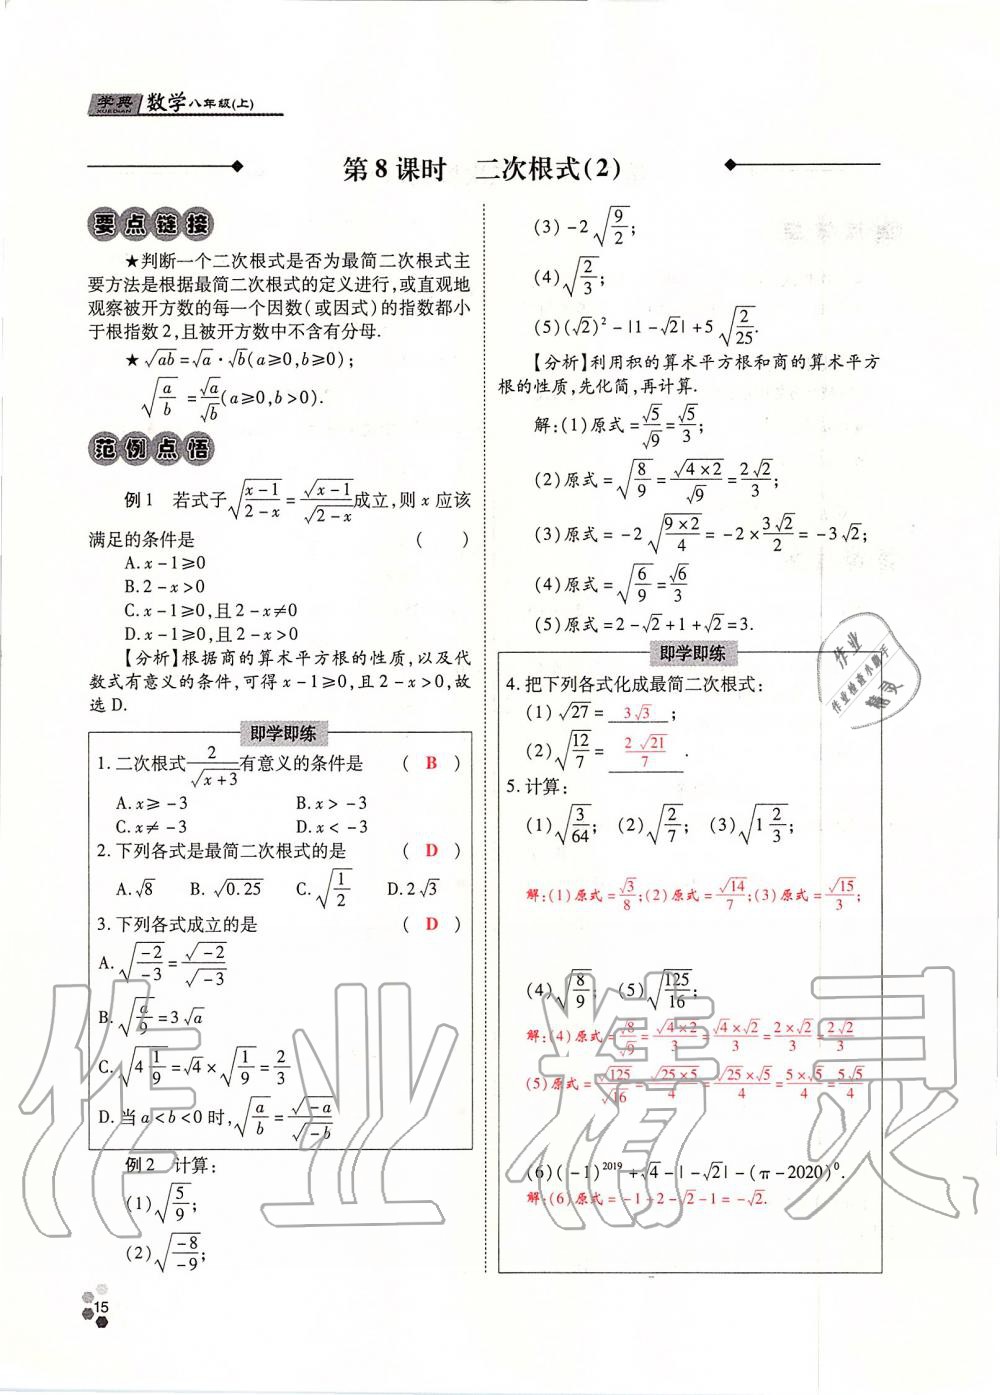 学典 XUEDIAN 数学八年级(上)
第8课时 二次根式(2)
要点链接
★判断一个二次根式是否为最简二次根式主
要方法是根据最简二次根式的定义进行,或直观地
观察被开方数的每一个因数(或因式)的指数都小
于根指数2,且被开方数中不含有分母.
★√(ab)=√a·√b(a≥0,b≥0);
√(a/b)=√a/√b(a≥0,b>0).
范例点悟
例1 若式子√((x-1)/(2-x))=√(x-1)/√(2-x)成立,则x应该
满足的条件是 ( )
A.x-1≥0
B.2-x>0
C.x-1≥0,且2-x≠0
D.x-1≥0,且2-x>0
【分析】根据商的算术平方根的性质,以及代
数式有意义的条件,可得x-1≥0,且2-x>0,故
选D.
即学即练
1.二次根式2/√(x+3)有意义的条件是 ( B )
A.x≥-3 B.x>-3
C.x≠-3 D.x<-3
2.下列各式是最简二次根式的是 ( D )
A.√8 B.√0.25 C.√(1/2) D.2√3
3.下列各式成立的是 ( D )
A.√(-2/-3)=√-2/√-3
B.√(a/9)=3√a
C.√(4 1/9)=√4×√(1/9)=2/3
D.当a<b<0时,√(a/b)=√-a/√-b
例2 计算:
(1)√(5/9);
(2)√(-8/-9);
15
(3)-2√(9/2);
(4)√(2/3);
(5)(√2)²-|1-√2|+5√(2/25).
【分析】利用积的算术平方根和商的算术平方
根的性质,先化简,再计算.
解:(1)原式=√5/√9=√5/3;
(2)原式=√(8/9)=√(4×2)/√9=2√2/3;
(3)原式=-2√(9×2/4)=-2×3√2/2=-3√2;
(4)原式=√(6/9)=√6/3
(5)原式=2-√2+1+√2=3.
即学即练
4.把下列各式化成最简二次根式:
(1)√27= 3√3 ;
(2)√(12/7)= 2√21/7 .
5.计算:
(1)√(3/64); (2)√(2/7); (3)√(1 2/3);
解:(1)原式=√3/8;(2)原式=√14/7;(3)原式=√15/3;
(4)√(8/9); (5)√(125/16);
解:(4)原式=√8/√9=√(4×2)/3=√4×√2/3=2×√2/3=2√2/3
(5)原式=√125/√16=√(25×5)/4=√25×√5/4=5×√5/4=5√5/4
(6)(-1)²⁰¹⁹+√4-|-√2|-(π-2020)⁰.
解:(6)原式=-1+2-√2-1=-√2.
作业精灵
作业
作业检查小助手
精灵